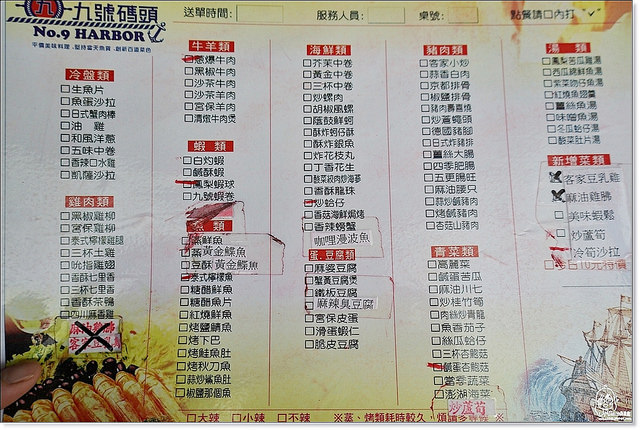 九 九號碼頭
No.9 HARBOR
平價美味料理、堅持當天魚貨、創新百道菜色
送單時間：
服務人員：
桌號：
點餐請口內打"✓"
冷盤類
□生魚片
□魚蛋沙拉
□日式蟹肉棒
□油 雞
□和風洋蔥
□五味中卷
□香辣口水雞
□凱薩沙拉
雞肉類
□黑椒雞柳
□宮保雞柳
□泰式檸檬雞腿
□三杯土雞
□吮指雞翅
□香酥七里香
□三杯七里香
□香酥茶鴨
□四川麻香雞
牛羊類
□蔥爆牛肉
□黑椒牛肉
□沙茶牛肉
□沙茶羊肉
□宮保羊肉
□清燉牛肉煲
蝦 類
□白灼蝦
□鹹酥蝦
□鳳梨蝦球
□九號蝦卷
魚 類
黃金鰈魚
□豆酥黃金鰈魚
□泰式檸檬魚
□糖醋鮮魚
□糖醋魚片
□紅燒鮮魚
□烤鹽鯖魚
□烤下巴
□烤鮭魚肚
□烤秋刀魚
□蒜炒鯊魚肚
□椒鹽那個魚
海鮮類
□芥茉中卷
□黃金中卷
□三杯中卷
□炒螺肉
□胡椒風螺
□蔭鼓鮮蚵
□酥炸蚵仔酥
□酥炸銀魚
□炸花枝丸
□丁香花生
□酸菜絞肉炒海茸
□香酥龍珠
□炒蛤仔
□香菇海鮮焗烤
□香辣螃蟹
咖哩漫波魚
蛋、豆腐類
□麻婆豆腐
□蟹黃豆腐煲
□鐵板豆腐
麻辣臭豆腐
□宮保皮蛋
□滑蛋蝦仁
□脆皮豆腐
豬肉類
□客家小炒
□蒜香白肉
□京都排骨
□椒鹽排骨
□豬肉壽喜燒
□炒蒼蠅頭
□德國豬腳
□日式炸豬排
□薑絲大腸
□四季肥腸
□五更腸旺
□麻油腰只
□蒜炒鹹豬肉
□烤鹹豬肉
□杏菇山豬肉
青菜類
□高麗菜
□鹹蛋苦瓜
□麻油川七
□炒桂竹筍
□肉絲炒青龍
□魚香茄子
□絲瓜蛤仔
□三杯杏鮑菇
□鹹蛋杏鮑菇
□當季蔬菜
□澎湖海菜
炒蘆筍
湯 類
□鳳梨苦瓜雞湯
□西瓜綿鮮魚湯
□紫菜吻仔魚湯
□紅燒魚翅羹
□薑絲魚湯
□味噌魚湯
□冬瓜蛤仔湯
□酸菜肚片湯
新增菜類
客家豆乳雞
麻油雞胇
□美味蝦鬆
炒蘆筍
冷筍沙拉
□大辣 □小辣 □不辣
※蒸、烤類耗時較久，